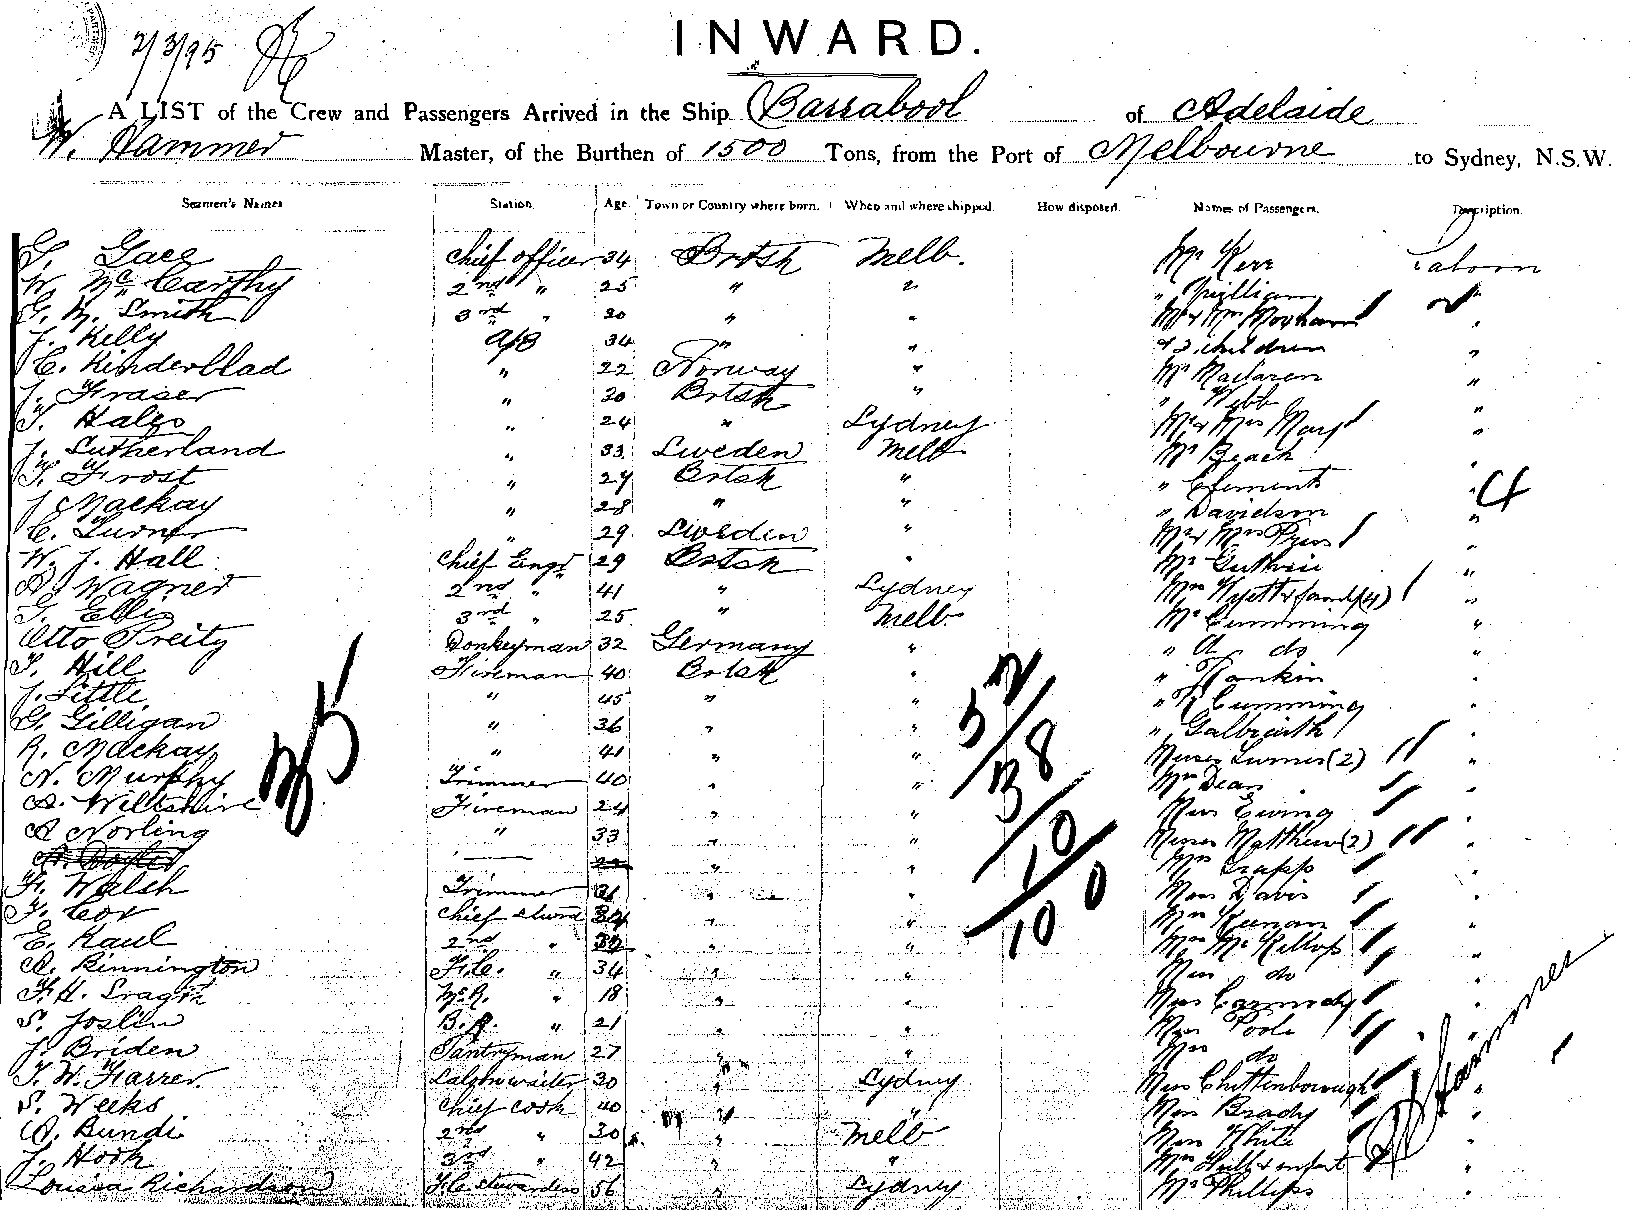 2/3/95
INWARD.
A LIST of the Crew and Passengers Arrived in the Ship Barrabool of Adelaide
W. Hammer Master, of the Burthen of 1500 Tons, from the Port of Melbourne to Sydney, N.S.W.
Seamen's Names Station. Age. Town or Country where born. When and where shipped. How disposed. Names of Passengers. Description.
G. Gace Chief officer 34 Brtsh Melb. Mr Kerr Saloon
W. McCarthy 2nd " 25 " " "
G. M. Smith 3rd " 20 " " Mr & Mrs "
J. Kelly A/B 34 " " & 3 children "
C. Kinderblad " 22 Norway " Mr Maclaren "
J. Fraser " 20 Brtsh " " Webb "
T. Hales " 24 " Sydney Mr & Mrs "
J. Sutherland " 33 Sweden Melb Mr Beach "
T. Frost " 29 Brtsh " " Clements "
J Mackay " 28 " " " Davidson "
C. Turner " 29 Sweden " Mr & Mrs "
W. J. Hall Chief Engr 29 Brtsh " Mr Guthrie "
A Wagner 2nd " 41 " Sydney Mrs & family (4) "
G. Ellis 3rd " 25 " Melb Mr Cumming "
Otto Preity Donkeyman 32 Germany " " A do "
T. Hill Fireman 40 Brtsh " " Rankin "
J. Little " 45 " " " R Cumming "
G. Gilligan " 36 " " " Galbraith "
R. Mackay " 41 " " Misses Turner (2) "
N. Murphy Trimmer 40 " " Mrs Dean "
A. Wiltshire Fireman 24 " " Miss Ewing "
A Norling " 33 " " Misses Matthew (2) "
" " Mrs Trapp "
F. Walsh Trimmer 21 " " Miss Davis "
F. Cox Chief Stwrd 34 " " Mrs Keenan "
E. Kaul 2nd " 32 " " Mrs McKillop "
A. Kinnington F.C. " 34 " " Miss do "
F. H. " 18 " " Miss Carmody "
S. Joslin " 21 " " Mrs Poole "
J. Briden Pantryman 27 " " Miss do "
T. W. Farrer. Saloon waiter 30 " Sydney Miss Chittenborough "
S. Weeks Chief cook 40 " " Miss Brady "
A. Bundi 2nd " 30 " Melb Miss White "
J. Hook 3rd " 42 " " Mrs & infant "
Louisa Richardson F.C. Stewardess 56 Sydney Mr Phillips "
35
52
38
10
100
4
W Hammer